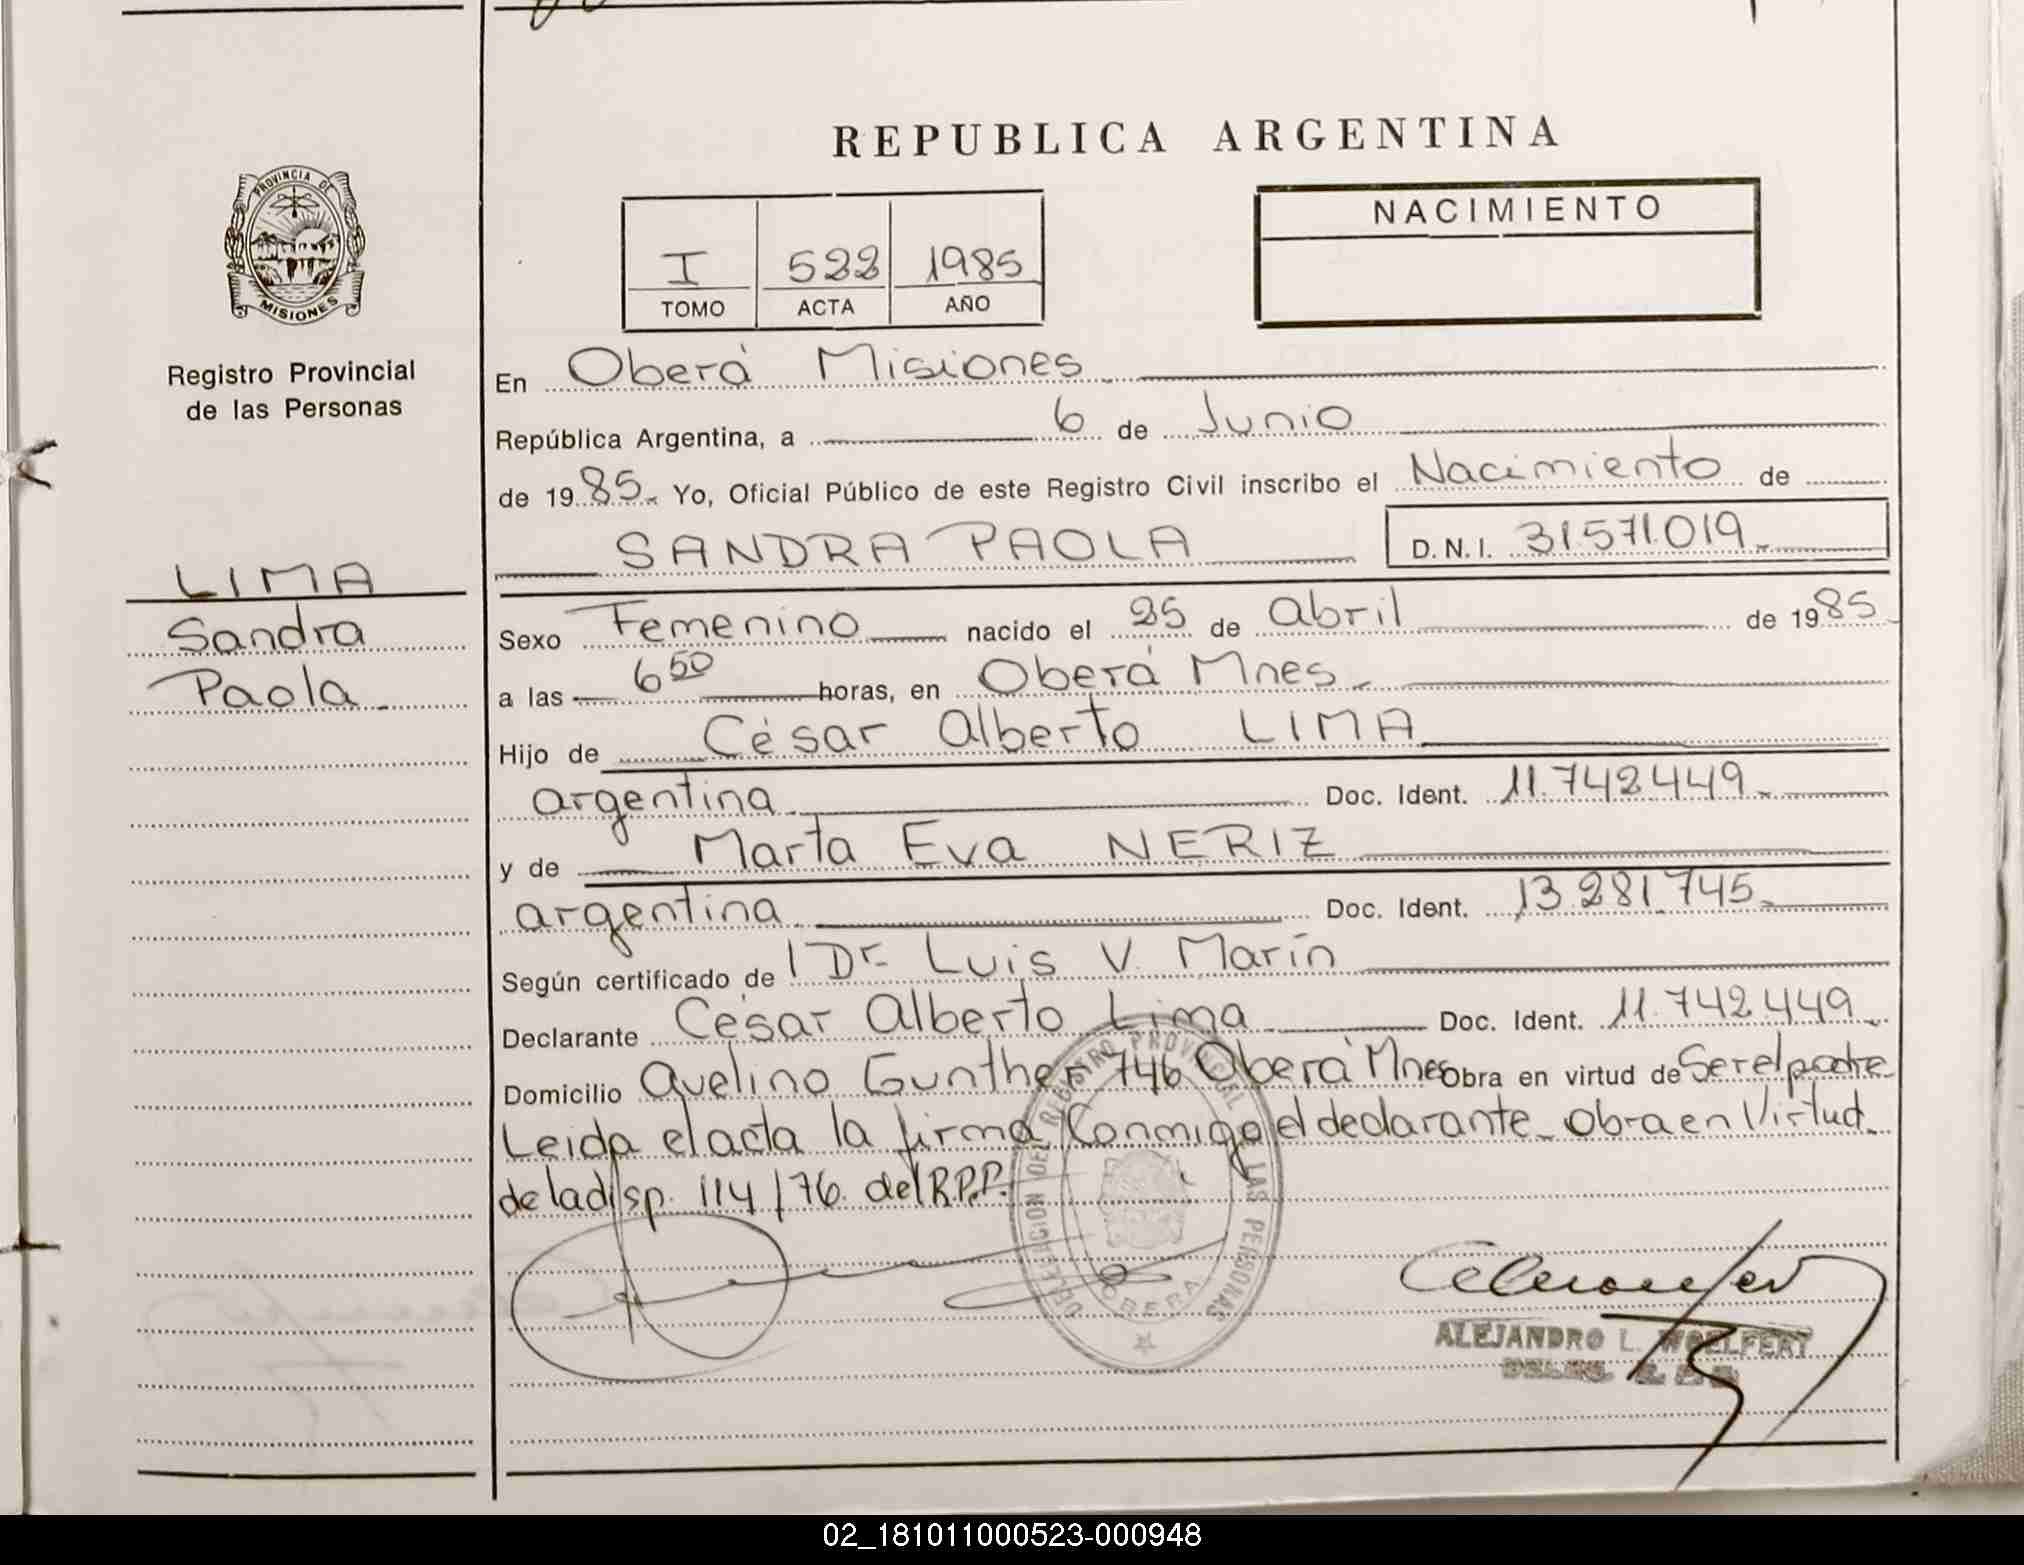 REPUBLICA ARGENTINA
PROVINCIA DE
MISIONES
Registro Provincial
de las Personas
I 522 1985
TOMO ACTA AÑO
NACIMIENTO
LIMA
Sandra
Paola
En Oberá Misiones
República Argentina, a 6 de Junio
de 1985. Yo, Oficial Público de este Registro Civil inscribo el Nacimiento de
SANDRA PAOLA D.N.I. 31571.019
Sexo Femenino nacido el 25 de abril de 1985
a las 6 50 horas, en Oberá Mnes.
Hijo de César Alberto LIMA
argentina Doc. Ident. 11.742.449
y de Marta Eva NERIZ
argentina Doc. Ident. 13.281.745
Según certificado de Dr. Luis V. Marín
Declarante César Alberto Lima Doc. Ident. 11.742.449
Domicilio Avelino Gunther 746 Oberá Mnes Obra en virtud de Ser el padre
Leida el acta la firma Conmigo el declarante. Obra en Virtud
de la disp. 114/76. del R.P.P.
DELEGACION DEL REGISTRO PROVINCIAL DE LAS PERSONAS
OBERA
ALEJANDRO L. WOELFERT
02_181011000523-000948